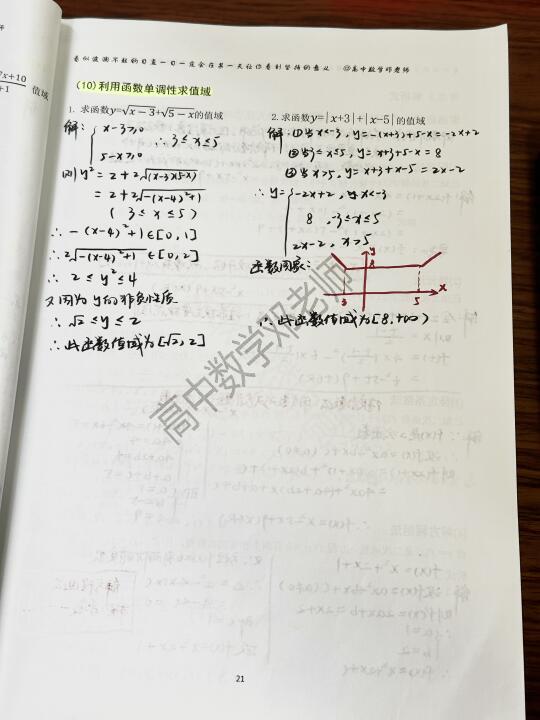 看似波澜不惊的日复一日一定会在某一天让你看到坚持的意义 @高中数学邓老师
7x+10
+1
值域
(10) 利用函数单调性求值域
1. 求函数y=√x−3+√5−x的值域
解: { x-3≥0
5-x≥0
∴ 3≤x≤5
则 y²=2+2√(x-3)(5-x)
=2+2√-(x-4)²+1
(3≤x≤5)
∴ -(x-4)²+1∈[0,1]
∴ 2√-(x-4)²+1∈[0,2]
∴ 2≤y²≤4
又因为y的非负性质
∴ √2≤y≤2
∴ 此函数值域为[√2,2]
2. 求函数y=|x+3|+|x-5|的值域
解: ①当x<-3, y=-(x+3)+5-x=-2x+2
②当3≤x≤5, y=x+3+5-x=8
③当x>5, y=x+3+x-5=2x-2
∴ y={ -2x+2, x<-3
8, -3≤x≤5
2x-2, x>5
函数图象:
y
8
3
5
x
∴ 此函数值域为[8,+∞)
高中数学邓老师
21